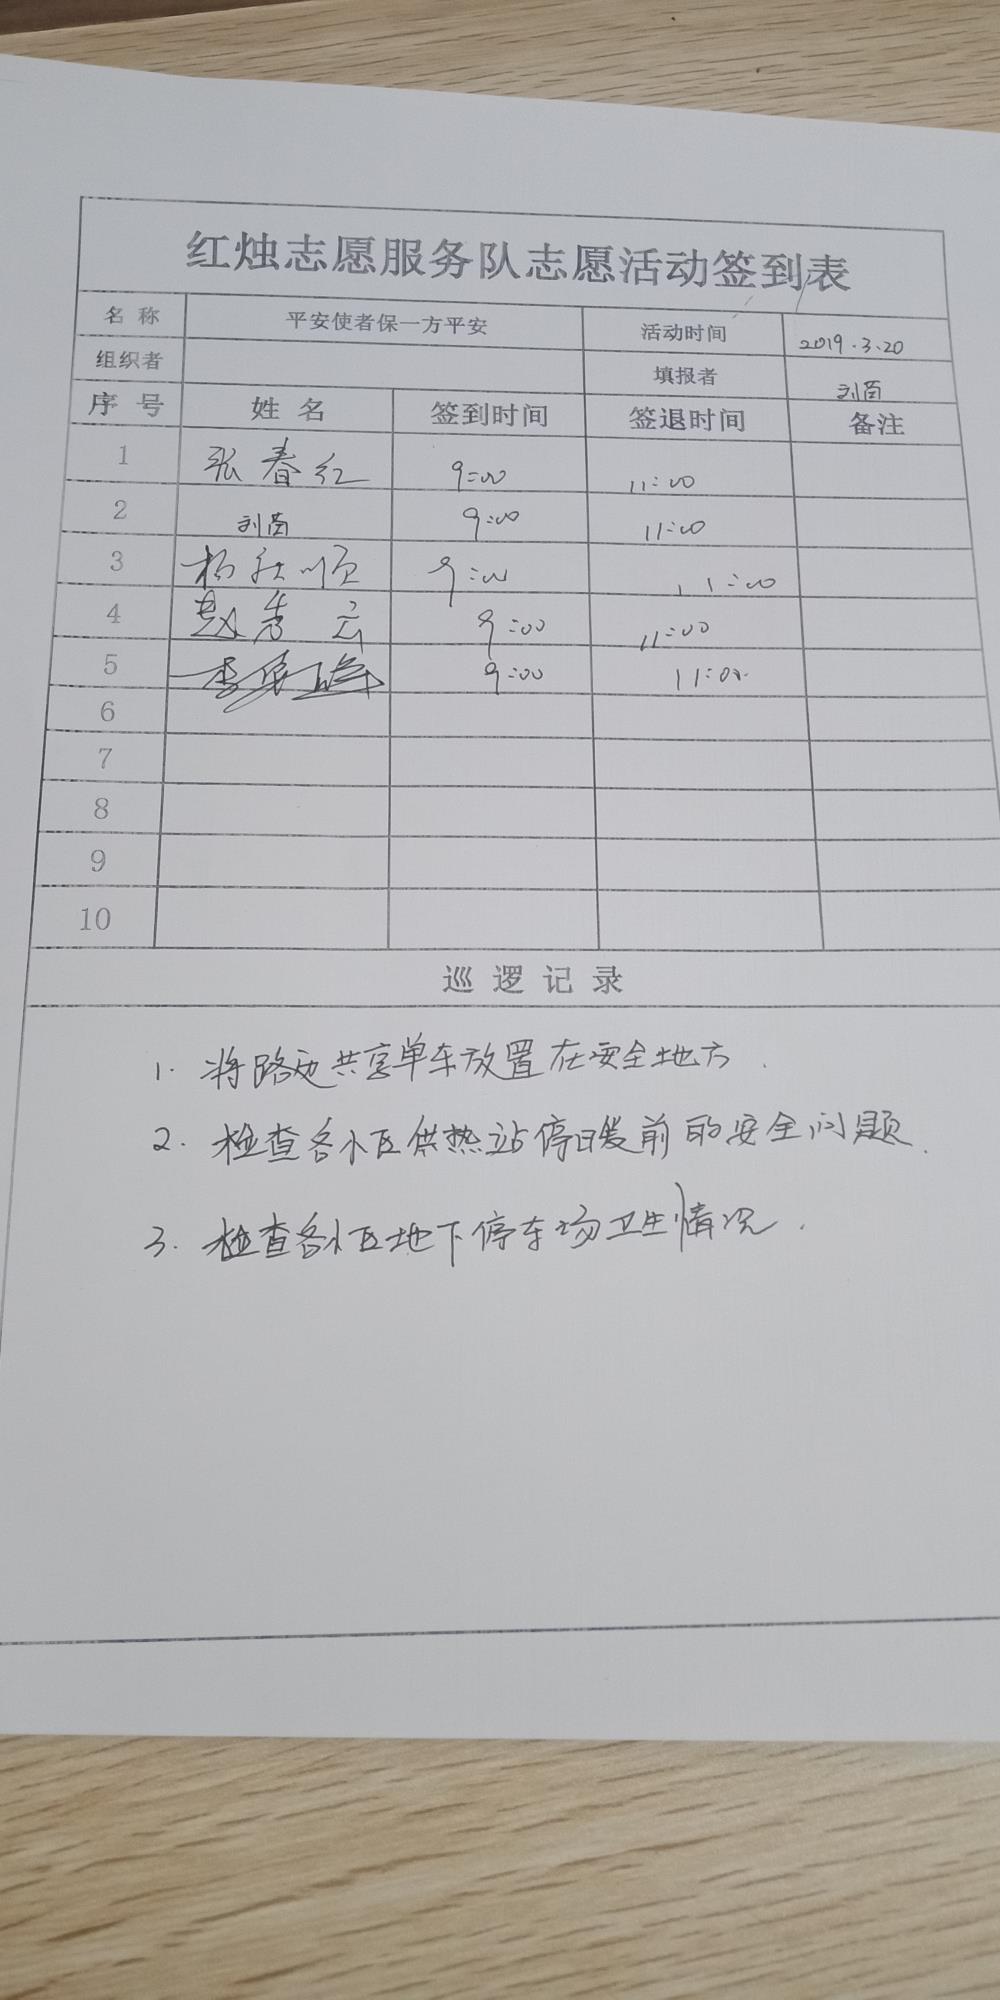 红烛志愿服务队志愿活动签到表
名 称 平安使者保一方平安 活动时间 2019.3.20
组织者 填报者 刘茵
序 号 姓 名 签到时间 签退时间 备注
1 张春红 9:00 11:00
2 刘茵 9:00 11:00
3 9:00 11:00
4 赵秀云 9:00 11:00
5 9:00 11:00
6
7
8
9
10
巡 逻 记 录
1. 将路边共享单车放置在安全地方.
2. 检查各小区供热站停暖前的安全问题.
3. 检查各小区地下停车场卫生情况.